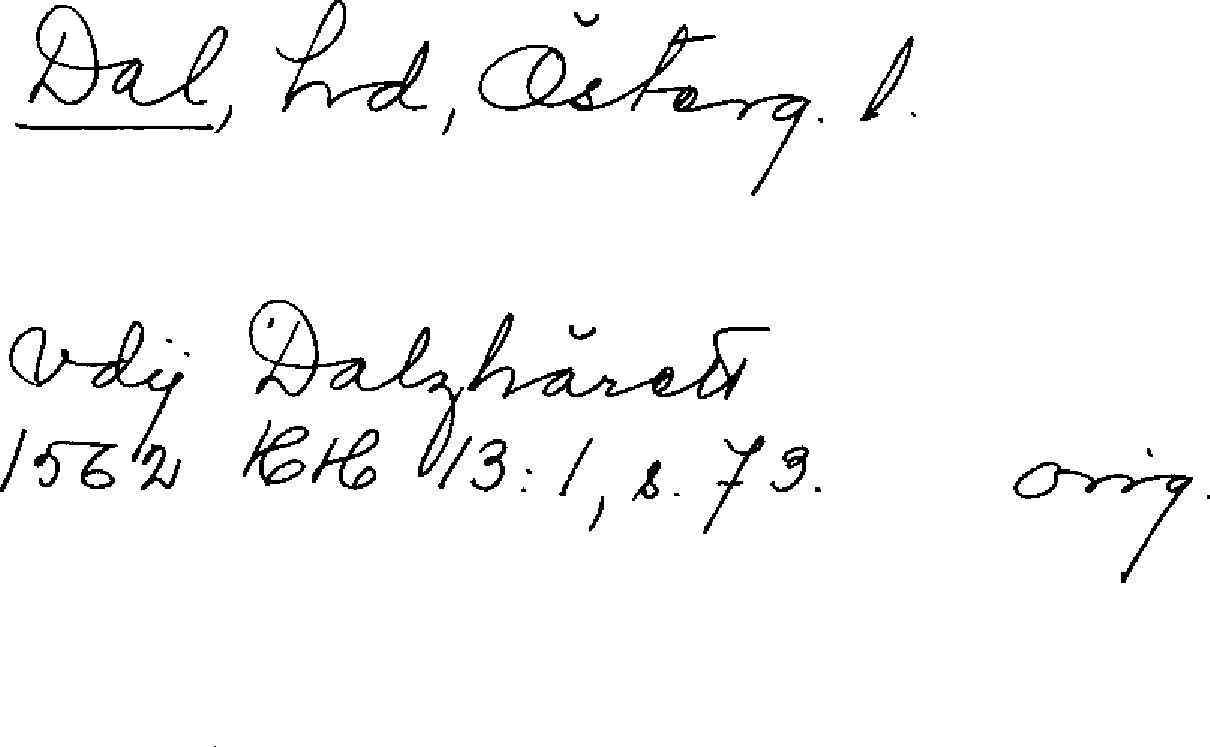 Dal, hrd, Österg. l.
vdij Dalzhäreth
1562 HH 13:1, s. 73. orig.